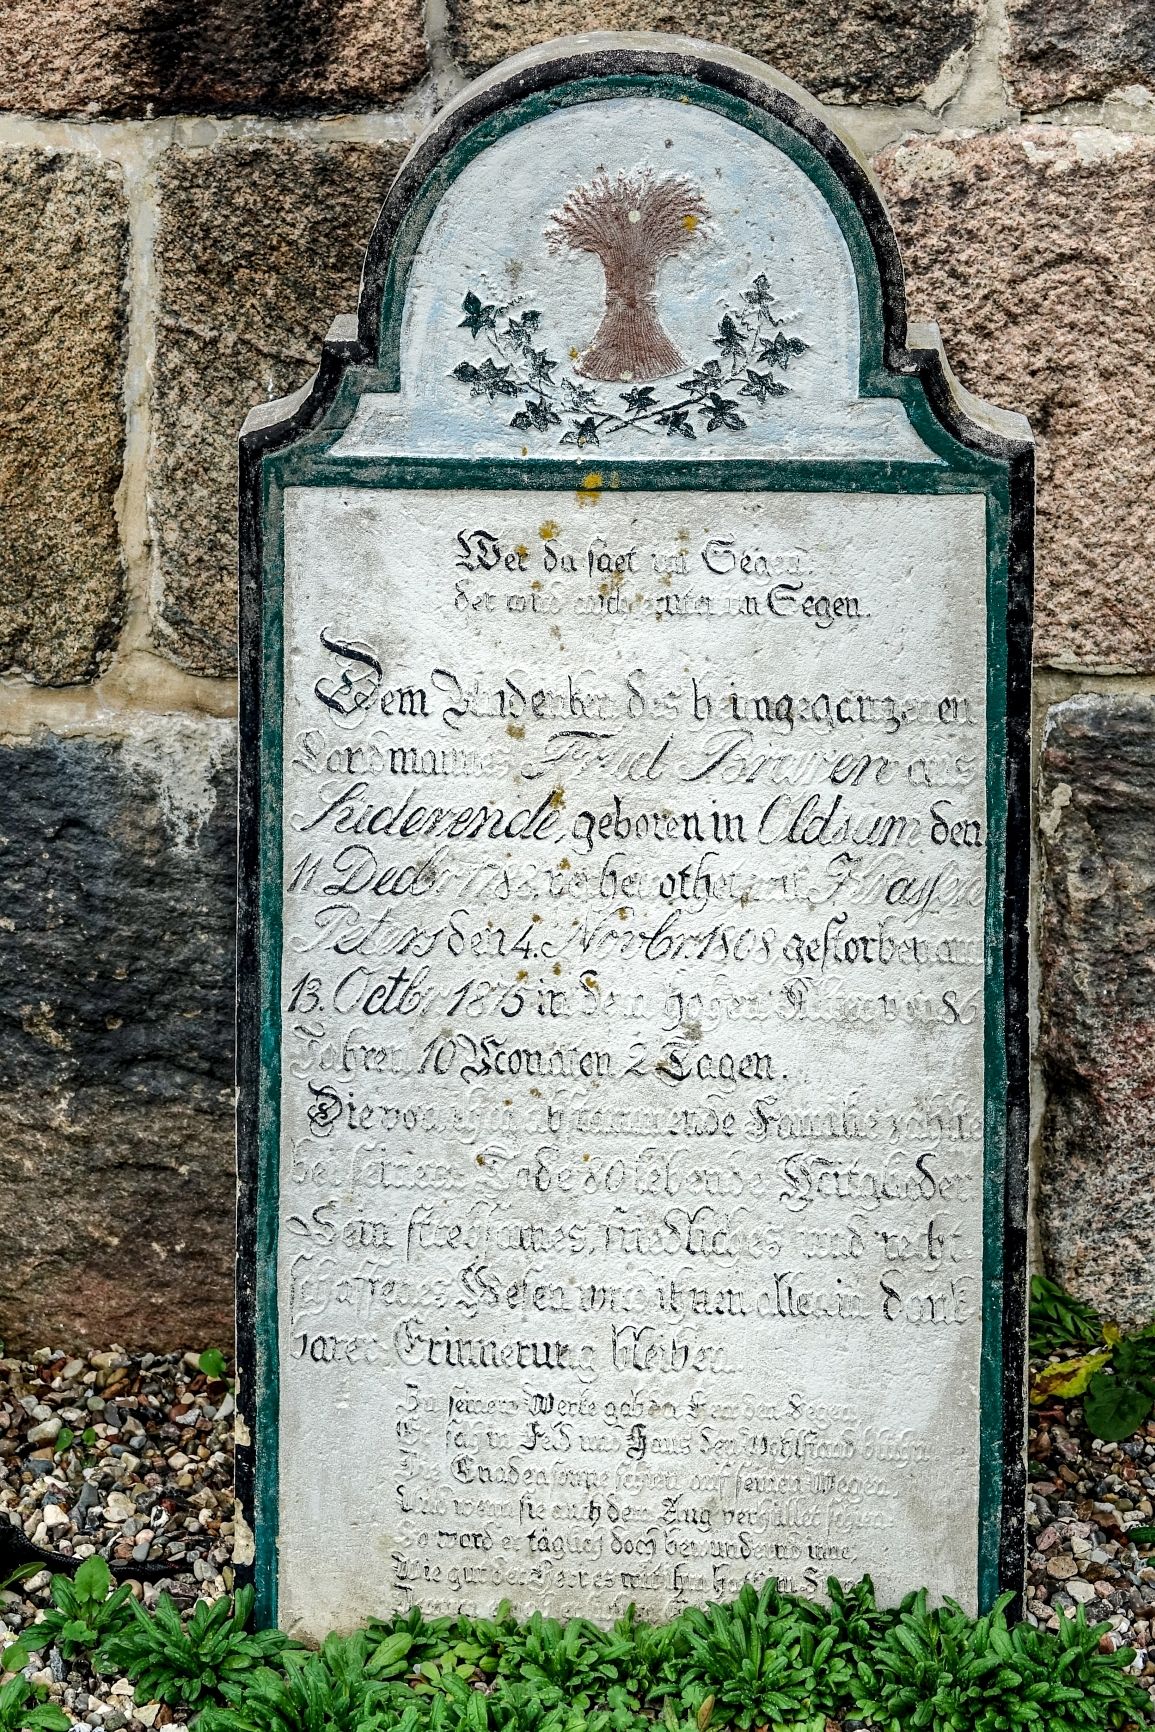 Wer da säet im Segen,
der wird auch ernten im Segen.
Dem Andenken des heimgegangenen
Landmannes Früd Braren aus
Süderende, geboren in Oldsum den
11 Decbr 178 verheirathet mit
Peters den 4. Novbr. 1808 gestorben am
13. Octbr 1875 in dem hohen Alter von 86
Jahren 10 Monaten 2 Tagen.
Die von ihm abstammende Familie zählte
bei seinem Tode 30 lebende Mitglieder
Sein strebsames, friedliches und recht
schaffenes Wesen wird ihnen allen in dank
barer Erinnerung bleiben.
Zu seinem Werke gab der Herr den Segen,
Er sah in Feld und Haus den Wohlstand blühn
Die Gnadensonne schien auf seinen Wegen,
Und wenn sie auch dem Aug verhüllet schien
So ward er täglich doch bewundernd inne,
Wie gut der Herr es mit ihm hatt' im Sinne